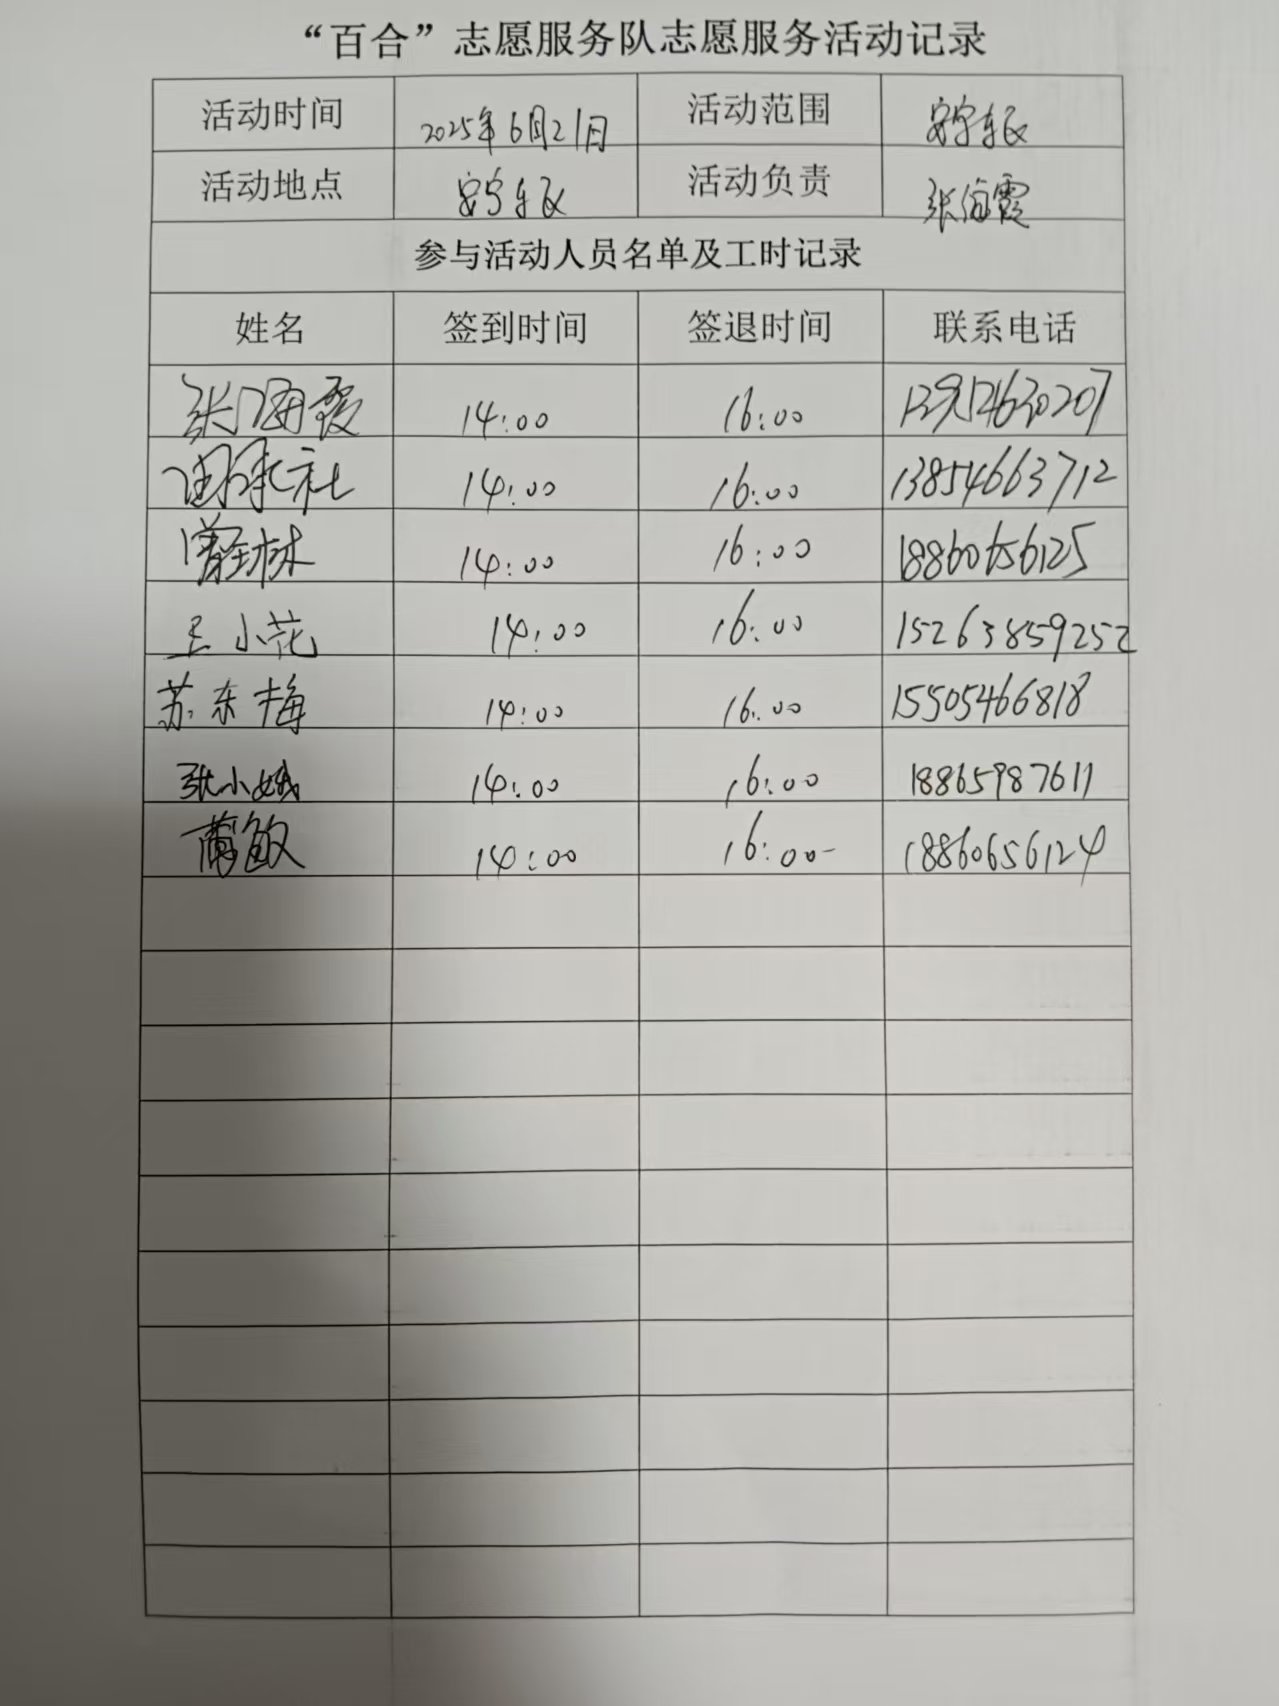 “百合”志愿服务队志愿服务活动记录
活动时间 2025年6月21日 活动范围
活动地点 活动负责 张海霞
参与活动人员名单及工时记录
姓名 签到时间 签退时间 联系电话
张海霞 14:00 16:00
14:00 16:00 13854663712
14:00 16:00 18860656125
王小花 14:00 16:00 15263859252
苏东梅 14:00 16:00 15505466818
张小娥 14:00 16:00 18865987611
14:00 16:00 18860656124